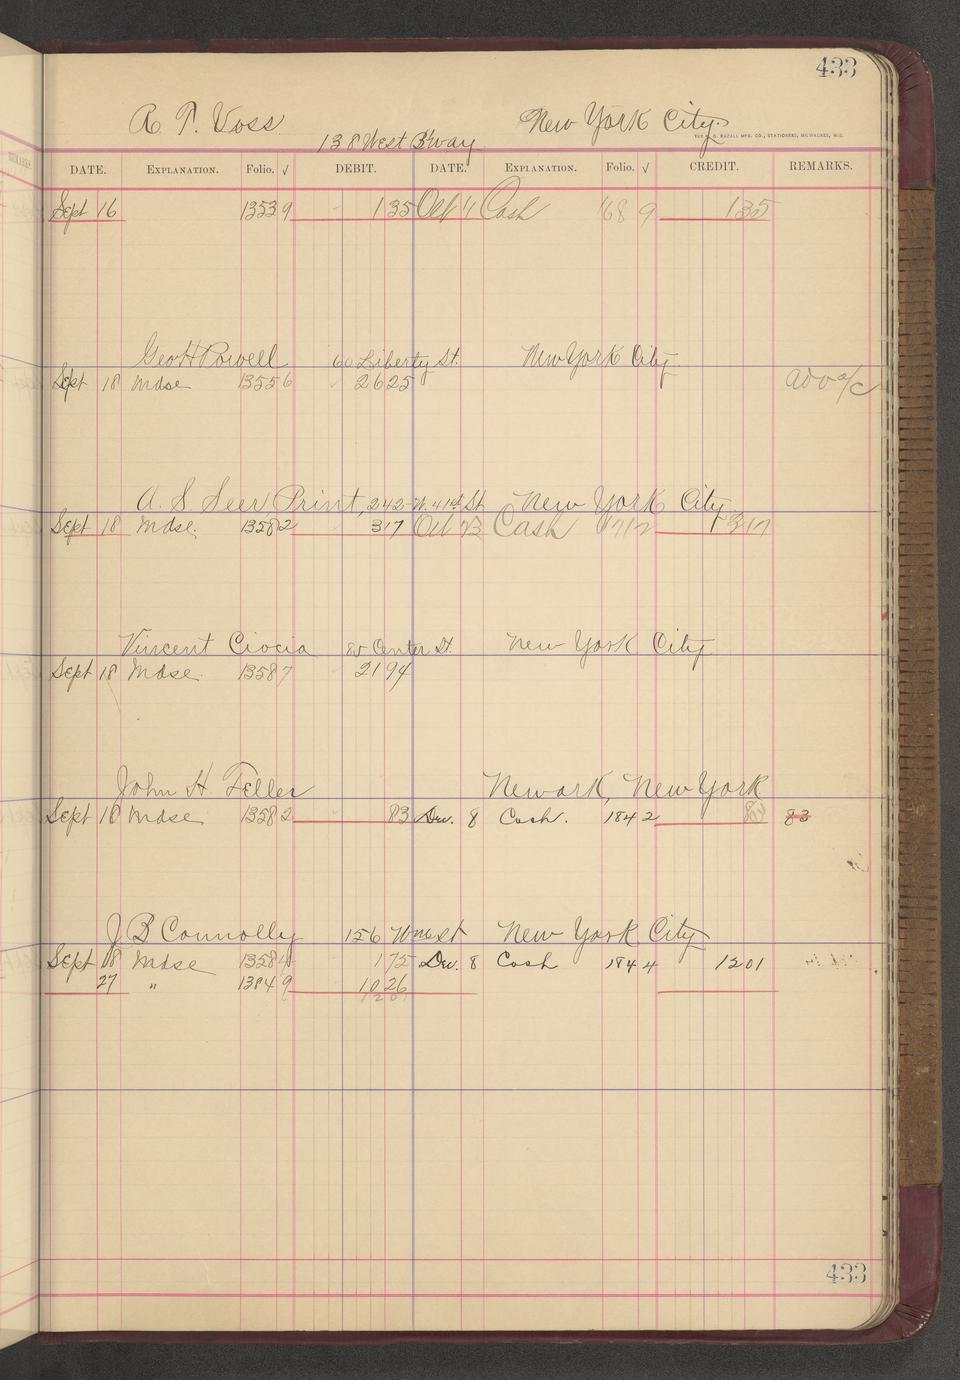 433
R. T. Voss New York City.
138 West B'way
DATE. EXPLANATION. Folio. √ DEBIT. DATE. EXPLANATION. Folio. √ CREDIT. REMARKS.
Sept 16 1353 9 135 Oct 11 Cash 168 9 135
Geo H Powell 60 Liberty St. New York City
Sept 18 Mdse 1355 6 2625 adv a/c
A. S. Seer Print, 242-W. 41st St New York City
Sept 18 Mdse. 1358 2 317 Oct 23 Cash 171 2 317
Vincent Ciocia 85 Center St. New York City
Sept 18 Mdse. 1358 7 2194
John H. Feller Newark, New York
Sept 18 Mdse 1358 2 83 Dec. 8 Cash. 184 2 83
J B Connolly 156 Wm St New York City
Sept 18 Mdse 1358 4 175 Dec. 8 Cash 184 4 1201
27 " 1384 9 1026
1201
433